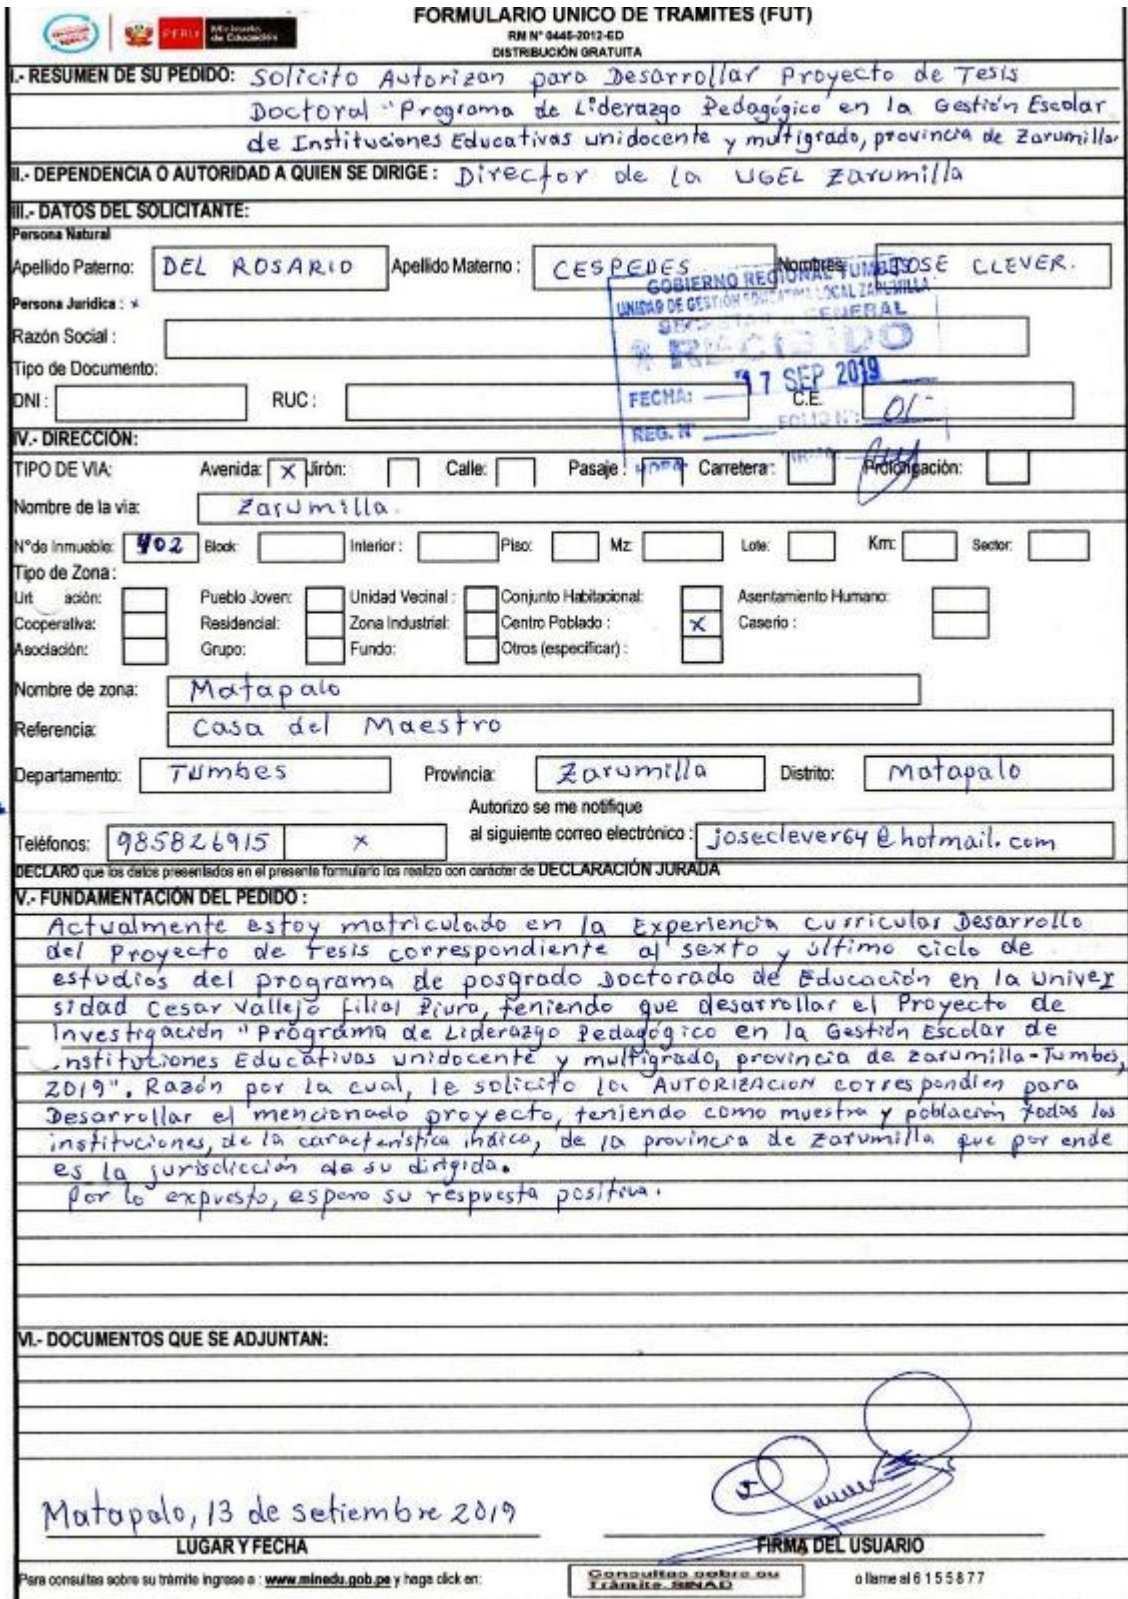 FORMULARIO UNICO DE TRAMITES (FUT)
PERU Ministerio de Educación
RM N° 0445-2012-ED
DISTRIBUCIÓN GRATUITA
I.- RESUMEN DE SU PEDIDO: Solicito Autorizan para Desarrollar Proyecto de Tesis
Doctoral "Programa de Liderazgo Pedagógico en la Gestión Escolar
de Instituciones Educativas unidocente y multigrado, provincia de Zarumilla
II.- DEPENDENCIA O AUTORIDAD A QUIEN SE DIRIGE: Director de la UGEL Zarumilla
III.- DATOS DEL SOLICITANTE:
Persona Natural
Apellido Paterno: DEL ROSARIO Apellido Materno: CESPEDES Nombres: JOSE CLEVER.
GOBIERNO REGIONAL TUMBES
Persona Jurídica: x
UNIDAD DE GESTIÓN EDUCATIVA LOCAL ZARUMILLA
GENERAL
Razón Social:
RECIBIDO
Tipo de Documento:
17 SEP 2019
DNI: RUC: FECHA: C.E.
REG. N° FOLIO N°: 01-
IV.- DIRECCIÓN:
TIPO DE VIA: Avenida: X Jirón: Calle: Pasaje: Carretera: Prolongación:
Nombre de la via: Zarumilla.
N°de Inmueble: 402 Block: Interior: Piso: Mz: Lote: Km: Sector:
Tipo de Zona:
Urb ación: Pueblo Joven: Unidad Vecinal: Conjunto Habitacional: Asentamiento Humano:
Cooperativa: Residencial: Zona Industrial: Centro Poblado: X Caserio:
Asociación: Grupo: Fundo: Otros (especificar):
Nombre de zona: Matapalo
Referencia: Casa del Maestro
Departamento: Tumbes Provincia: Zarumilla Distrito: Matapalo
Autorizo se me notifique
Teléfonos: 985826915 x al siguiente correo electrónico: joseclever64@hotmail.com
DECLARO que los datos presentados en el presente formulario los realizo con carácter de DECLARACIÓN JURADA
V.- FUNDAMENTACIÓN DEL PEDIDO:
Actualmente estoy matriculado en la Experiencia Curricular Desarrollo
del Proyecto de Tesis correspondiente al sexto y último ciclo de
estudios del programa de posgrado Doctorado de Educación en la Univer
sidad Cesar Vallejo filial Piura, teniendo que desarrollar el Proyecto de
Investigación "Programa de Liderazgo Pedagógico en la Gestión Escolar de
nstituciones Educativas unidocente y multigrado, provincia de Zarumilla-Tumbes,
2019". Razón por la cual, le solicito la AUTORIZACION correspondien para
Desarrollar el mencionado proyecto, teniendo como muestra y población todas las
instituciones, de la característica indica, de la provincia de Zarumilla que por ende
es la jurisdicción de su dirigida.
Por lo expuesto, espero su respuesta positiva.
VI.- DOCUMENTOS QUE SE ADJUNTAN:
Matapalo, 13 de setiembre 2019
LUGAR Y FECHA FIRMA DEL USUARIO
Para consultas sobre su trámite ingrese a: www.minedu.gob.pe y haga click en: Consultas sobre su Trámite SINAD o llame al 6155877